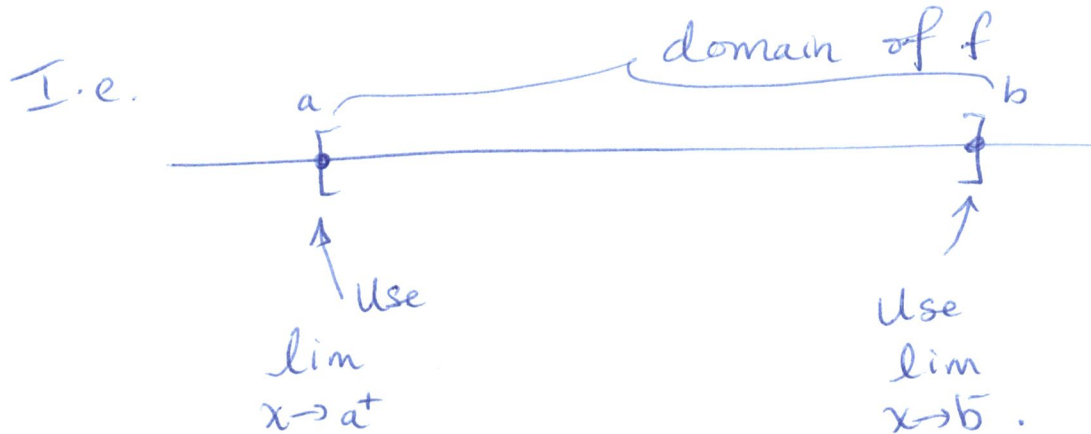 domain of f
I.e.
a
b
Use
lim
x→a⁺
Use
lim
x→b⁻.